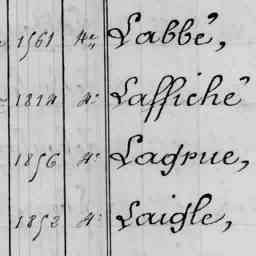 1561 4e Labbé,
1814 4e Laffiché
1856 4e Lagrue,
1852 4e Laigle,